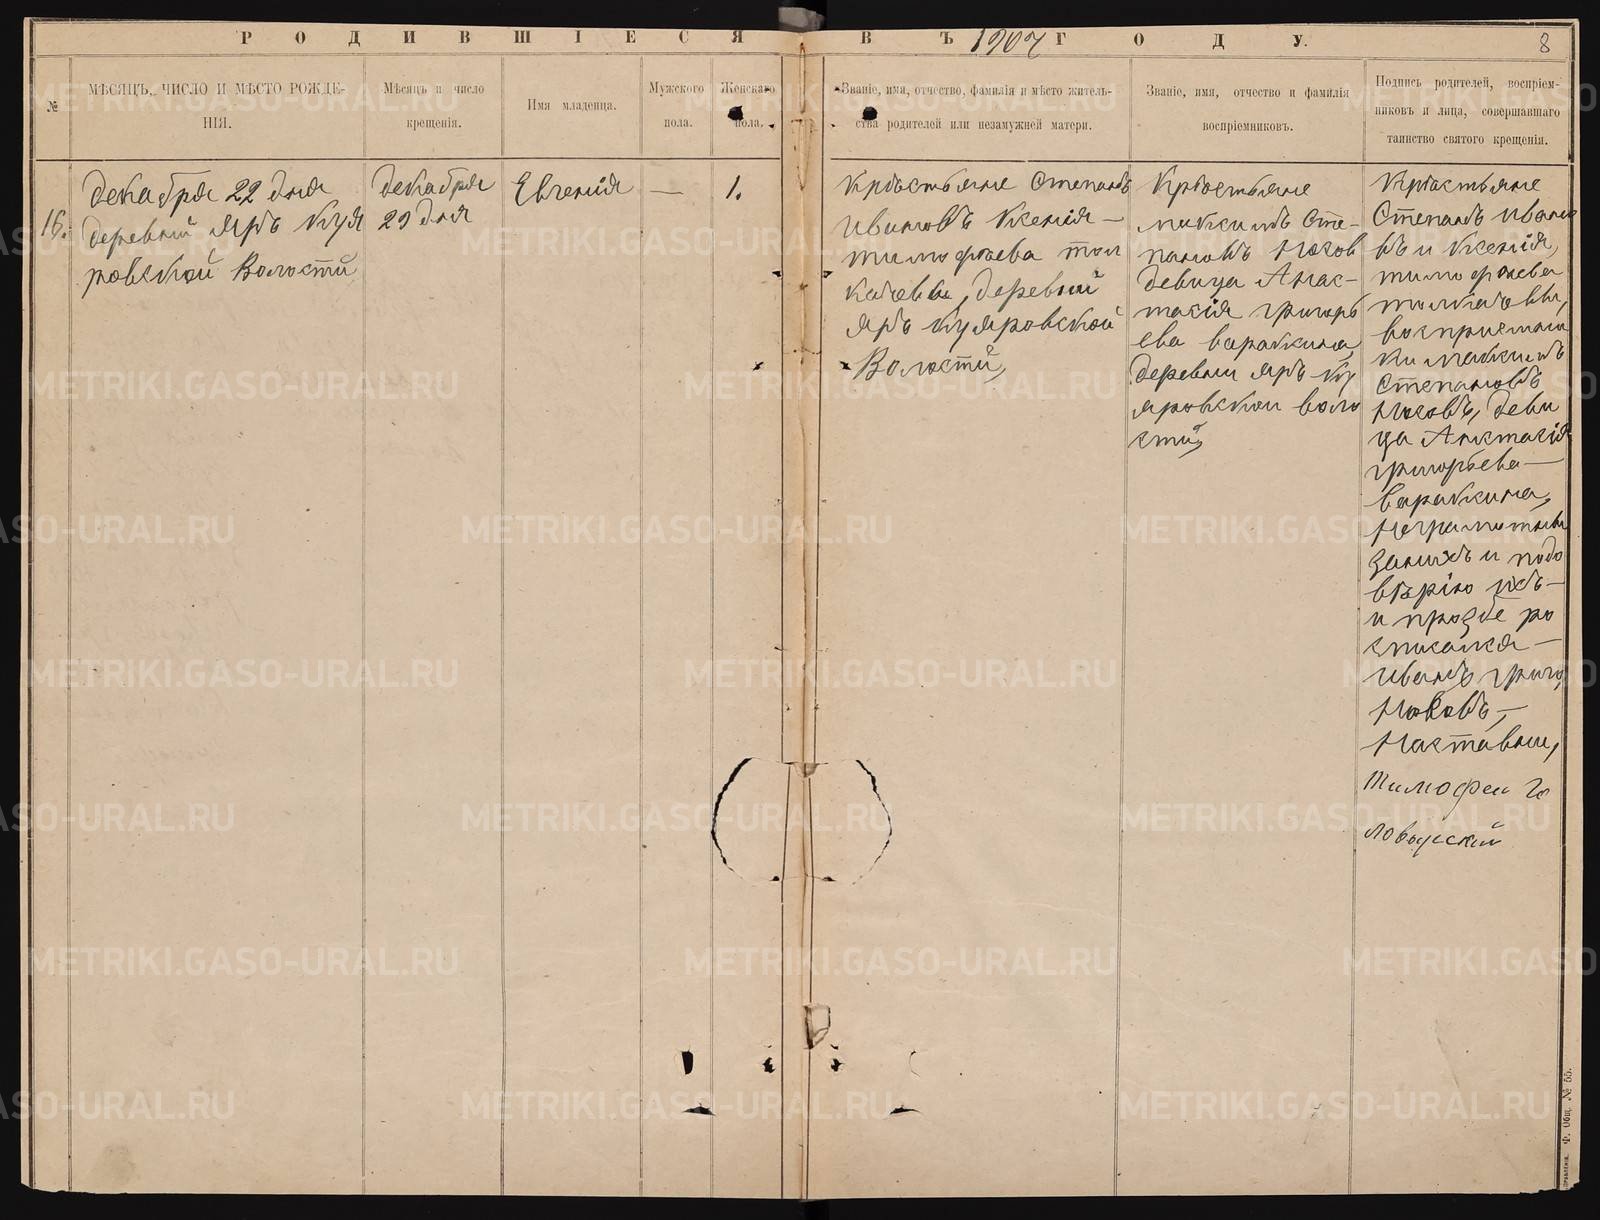 РОДИВШІЕСЯ ВЪ 1907 ГОДУ.
8
№
МѢСЯЦЪ, ЧИСЛО И МѢСТО РОЖДЕ-
НІЯ.
Мѣсяцъ и число
крещенія.
Имя младенца.
Мужского
пола.
Женскаго
пола.
Званіе, имя, отчество, фамилія и мѣсто житель-
ства родителей или незамужней матери.
Званіе, имя, отчество и фамилія
воспріемниковъ.
Подпись родителей, воспріем-
никовъ и лица, совершавшаго
таинство святого крещенія.
16.
Декабря 22 дня
деревни Яръ Куя
ровской Волости,
Декабря
29 дня
Евгенія
—
1.
Крѣстьяне Степанъ
Ивановъ Ксенія —
тимофѣева тол
качевы, деревни
Яръ Куяровской
Волости,
Крѣстьяне
Максимъ Сте-
пановъ Носов
девица Анас-
тасія григорь
ева варакина
деревни Яръ Ку
яровской воло
сти,
Крѣстьяне
Степанъ Ивано
въ и Ксенія,
тимофѣева
толкачевы,
воспріемни
ки Максимъ
Степановъ
Носовъ, деви
ца Анстасія
григорьева —
варакина,
неграмотны
занихъ и подо
вѣрію ихъ —
и прозбе ро
списался —
Иванъ григо,
Носовъ, —
Наставни,
Тимофеи Го
ловырский
Ф. Общ. № 55.
METRIKI.GASO-URAL.RU